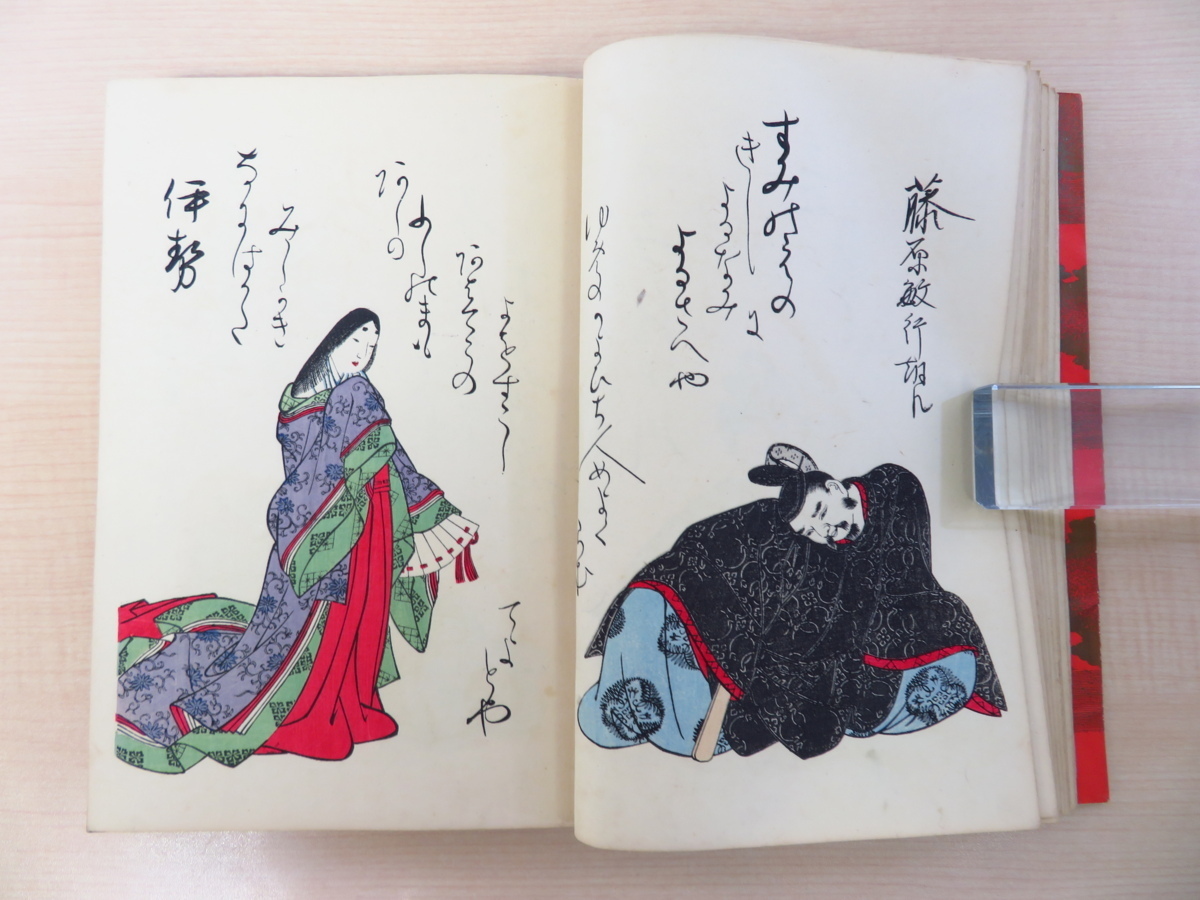 藤原敏行朝臣
すみのえの
きしに
よるなみ
よるさへや
ゆめのかよひち人めよく
伊勢
なにはかた
みしかき
あしの
ふしのまも
あはてこの
よをすくし
てよとや